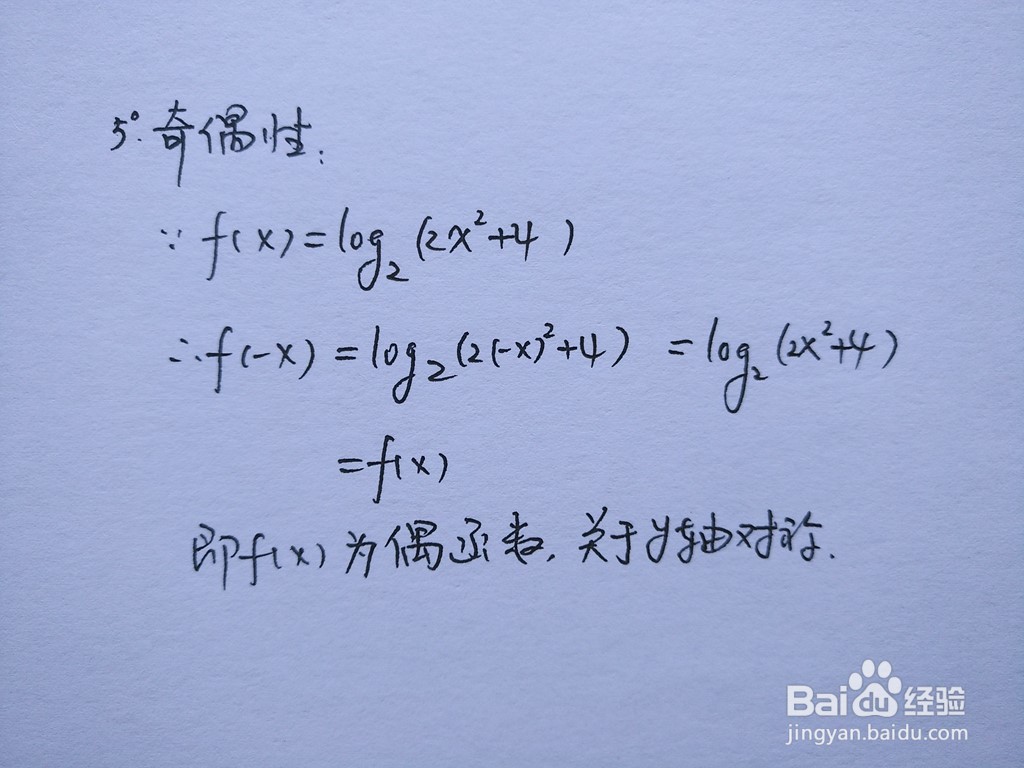 5°.奇偶性:
∵ f(x)=log₂(2x²+4)
∴f(-x) =log₂(2(-x)²+4) =log₂(2x²+4)
=f(x)
即f(x)为偶函数,关于y轴对称.
Baidu经验
jingyan.baidu.com